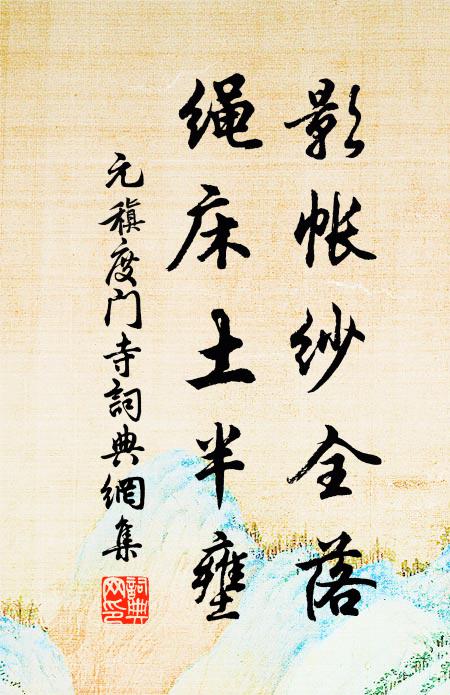 影帐纱全落
绳床土半壅
元稹度门寺詞典網集
詞典网印